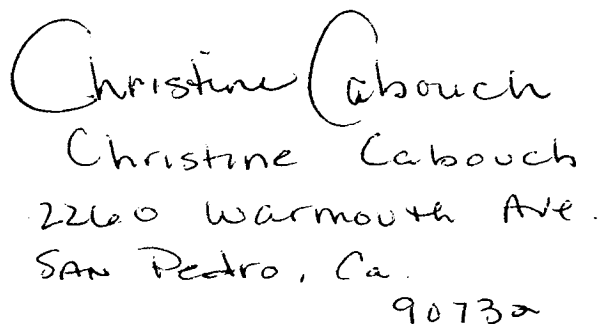 Christine Cabouch
Christine Cabouch
2260 Warmouth Ave.
SAN Pedro, Ca.
90732